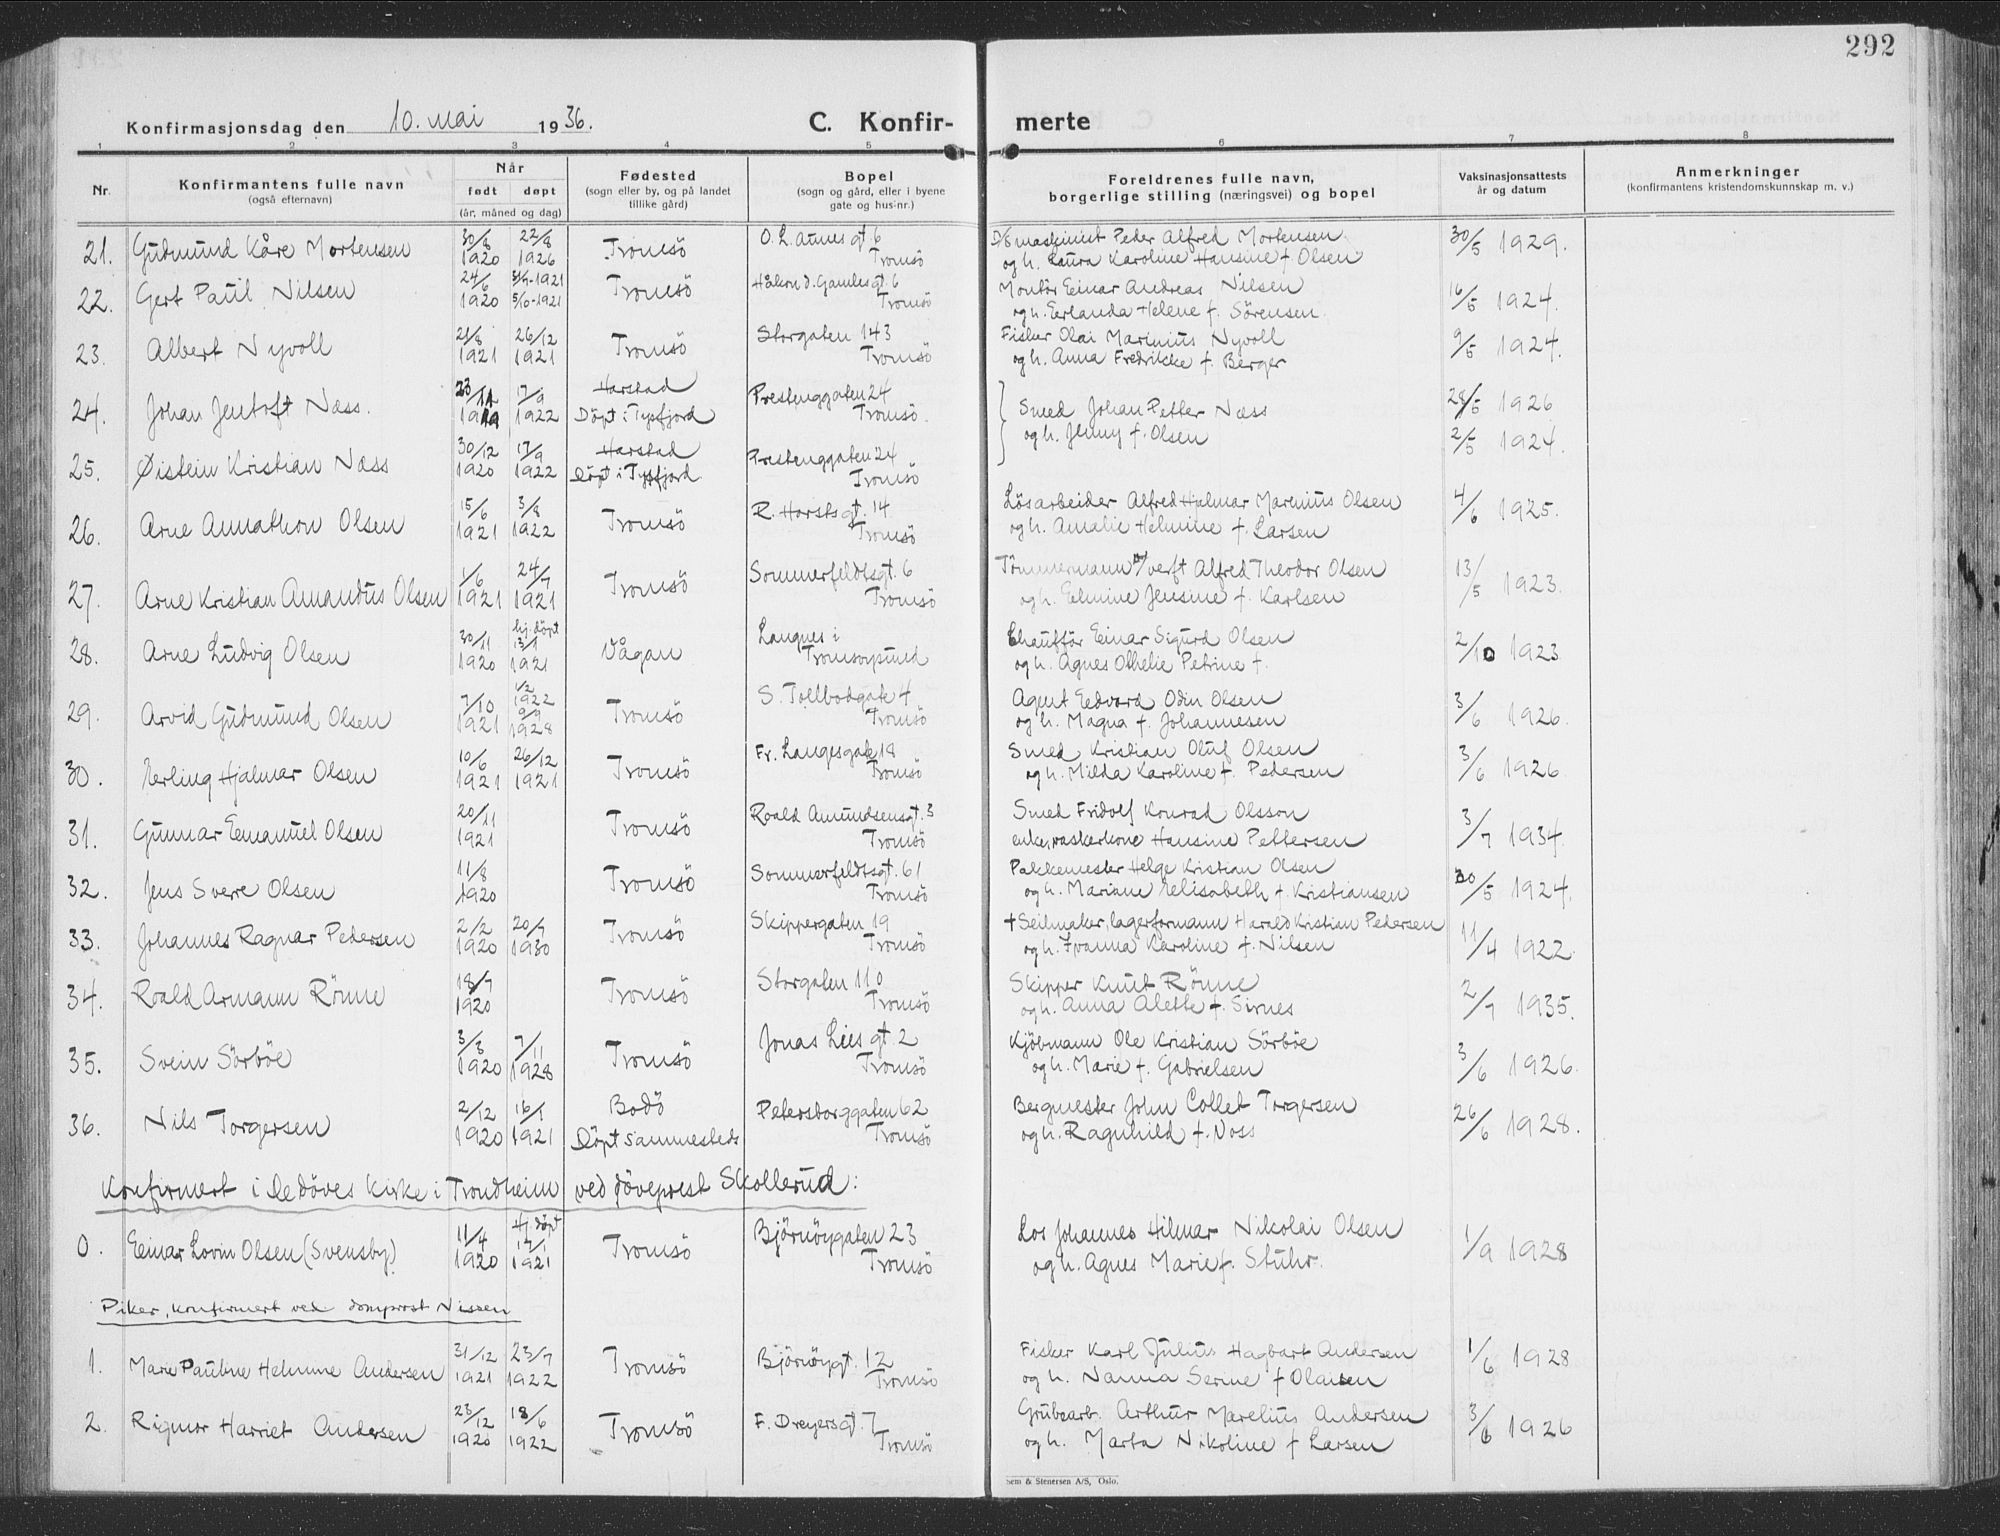 292
Konfirmasjonsdag den 10. mai 1936.
C. Konfir- merte
1 2 3 4 5 6 7 8
Nr.
Konfirmantens fulle navn
(også efternavn)
Når
født døpt
(år, måned og dag)
Fødested
(sogn eller by, og på landet
tillike gård)
Bopel
(sogn og gård, eller i byene
gate og hus-nr.)
Foreldrenes fulle navn,
borgerlige stilling (næringsvei) og bopel
Vaksinasjonsattests
år og datum
Anmerkninger
(konfirmantens kristendomskunnskap m. v.)
21. Gudmund Kåre Mortensen 30/8 1920 22/8 1926 Tromsö O. L. Aunes gt 6 Tromsö
D/S maskinist Peder Alfred Mortensen
og h. Laura Karoline Hansine f Olsen 30/5 1929.
22. Gert Paul Nilsen 24/6 1920 5/6-1921 Tromsö Håkon d. Gamles gt. 6 Tromsö
Montör Einar Andreas Nilsen
og h. Erlanda Helene f. Sörensen. 16/5 1924.
23. Albert Nyvoll 21/8 1921 26/12 1921 Tromsö Storgaten 143 Tromsö
Fisker Olai Marinius Nyvoll
og h. Anna Fredrikke f. Berger 9/5 1924.
24. Johan Jentoft Næss. 23/11 1919 17/9 1922 Harstad Döpt i Tysfjord Prestenggaten 24 Tromsö.
Smed Johan Petter Næss
og h. Jenny f. Olsen 28/5 1926
25. Øistein Kristian Næss 30/12 1920 17/9 1922 Harstad Döpt i Tysfjord Prestenggaten 24 Tromsö
2/5 1924.
26. Arne Annathon Olsen 15/6 1921 3/8 1922 Tromsö R. Horsts gt. 14 Tromsö
Lösarbeider Alfred Hjalmar Marenius Olsen
og h. Amalie Helmine f. Larsen 4/6 1925.
27. Arne Kristian Amandus Olsen 1/6 1921 24/7 1921 Tromsö Sommerfeldtsgt. 6 Tromsö
Tömmermann v/ verft Alfred Theodor Olsen
og h. Elmine Jensine f. Karlsen 13/5 1923.
28. Arne Ludvig Olsen 30/11 1920 hj. döpt 13/1 1921 Vågan Langnes i Tromsöysund
Chaufför Einar Sigurd Olsen
og h. Agnes Othelie Petrine f. 2/10 1923
29. Arvid Gudmund Olsen 7/10 1921 1/2 1922 9/9 1928 Tromsö S. Tollbodgate 4 Tromsö
Agent Edvard Odin Olsen
og h. Magna f. Johannesen 3/6 1926.
30. Erling Hjalmar Olsen 10/6 1921 26/12 1921 Tromsö Fr. Langesgate 18 Tromsö
Smed Kristian Oluf Olsen
og h. Milda Karoline f. Pedersen 3/6 1926.
31. Gunnar Emanuel Olsen 20/11 1921 Tromsö Roald Amundsensgt. 3 Tromsö
Smed Fridolf Konrad Olsson
enke, vaskerkone Hansine Pettersen 3/7 1934.
32. Jens Svere Olsen 11/8 1920 Tromsö Sommerfeldtsgt. 61 Tromsö
Pakkemester Helge Kristian Olsen
og h. Mariane Elisabeth f. Kristiansen 30/5 1924.
33. Johannes Ragnar Pedersen 2/2 1920 20/7 1930 Tromsö Skippergaten 19 Tromsö
+ Seilmaker, lagerformann Harald Kristian Pedersen
og h. Ivanna Karoline f. Nilsen 11/4 1922.
34. Roald Armann Rönne 18/7 1920 Tromsö Storgaten 110 Tromsö
Skipper Knut Rönne
og h. Anna Alette f. Sirnes 2/7 1935.
35. Svein Sörböe 3/3 1920 7/11 1928 Tromsö Jonas Lies gt. 2 Tromsö
Kjöbmann Ole Kristian Sörböe
og h. Marie f. Gabrielsen 3/6 1926.
36. Nils Torgersen 2/12 1920 16/1 1921 Bodö Döpt sammesteds Petersborggaten 62 Tromsö
Bergmester John Collet Torgersen
og h. Ragnhild f. Voss 26/6 1928.
Konfirmert i De döves kirke i Trondheim ved döveprest Skollerud:
0. Einar Lovin Olsen (Svensby) 11/4 1920 Hj. döpt 17/1 1921 Tromsö Björnöygaten 23 Tromsö
Los Johannes Hilmar Nikolai Olsen
og h. Agnes Marie f. Stuhr. 1/9 1928
Piker, konfirmert ved domprost Nissen
1. Marie Pauline Helmine Andersen 31/12 1921 23/7 1922 Tromsö Björnöygt. 12 Tromsö
Fisker Karl Julius Hagbart Andersen
og h. Nanna Serine f Olaisen 1/6 1928
2. Rigmor Harriet Andersen 23/12 1920 18/6 1922 Tromsö F. Dreyersgt. 7 Tromsö
Grubearb. Arthur Marelius Andersen
og h. Marta Nikoline f Larsen 3/6 1926
Sem & Stenersen A/S, Oslo.